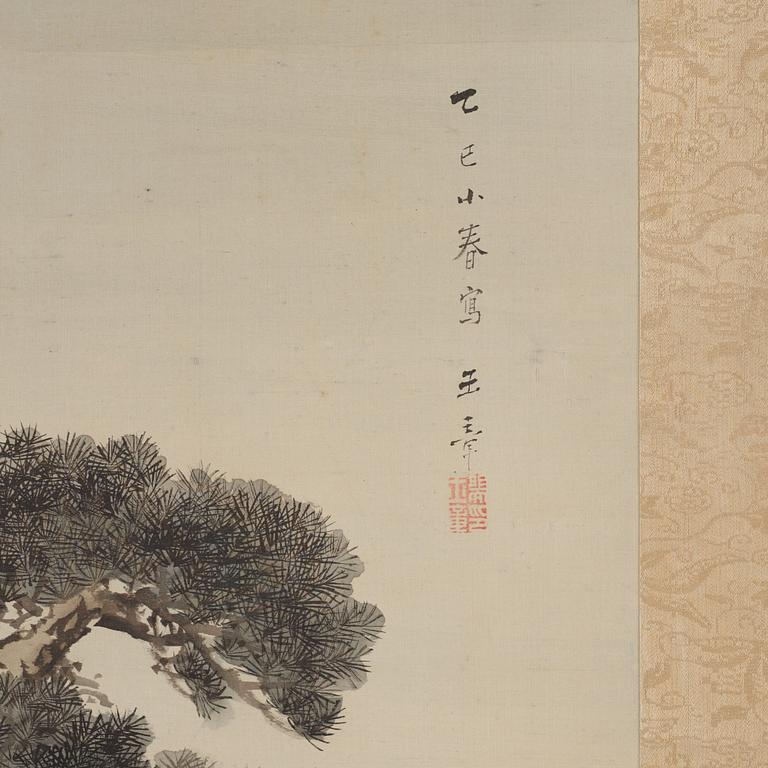 乙巳小春寫 玉章